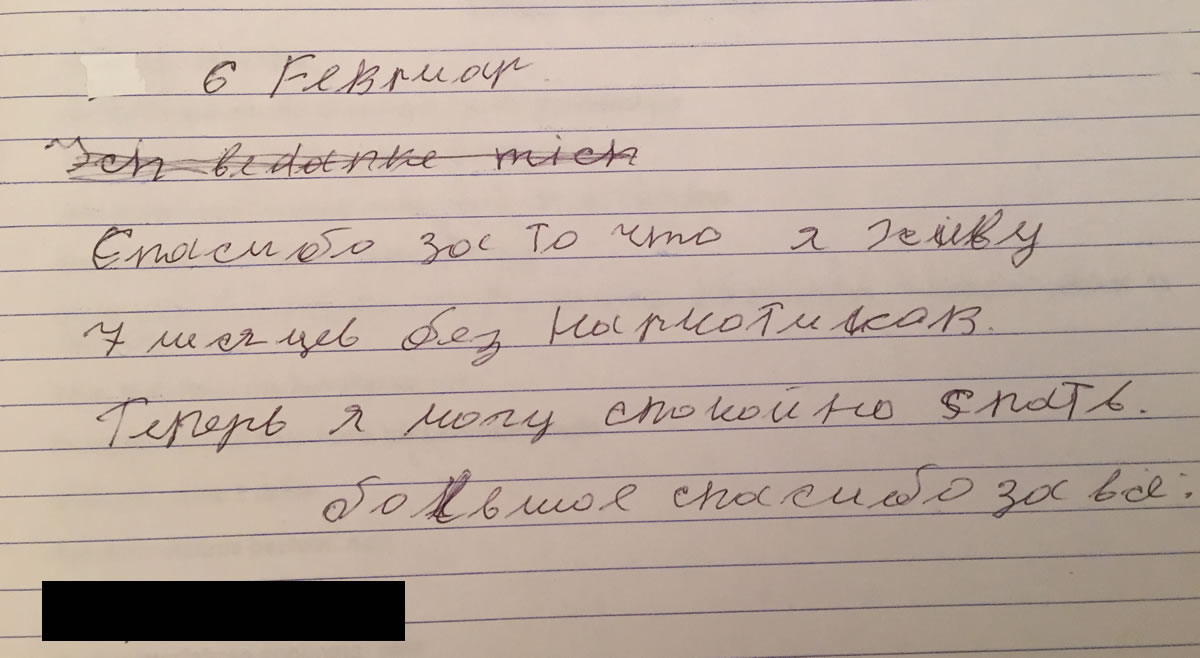 6 Fевриар
Ich bedanke mich
Спасибо за то что я живу
7 месяцев без наркотиков.
Теперь я могу спокойно sпать.
большое спасибо за всё.